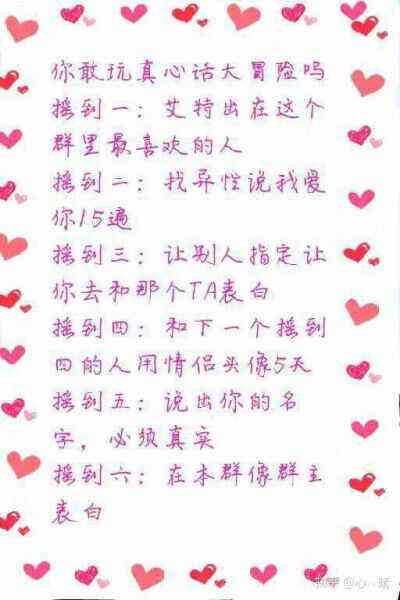 你敢玩真心话大冒险吗
摇到一：艾特出在这个
群里最喜欢的人
摇到二：找异性说我爱
你15遍
摇到三：让别人指定让
你去和那个TA表白
摇到四：和下一个摇到
四的人用情侣头像5天
摇到五：说出你的名
字，必须真实
摇到六：在本群像群主
表白